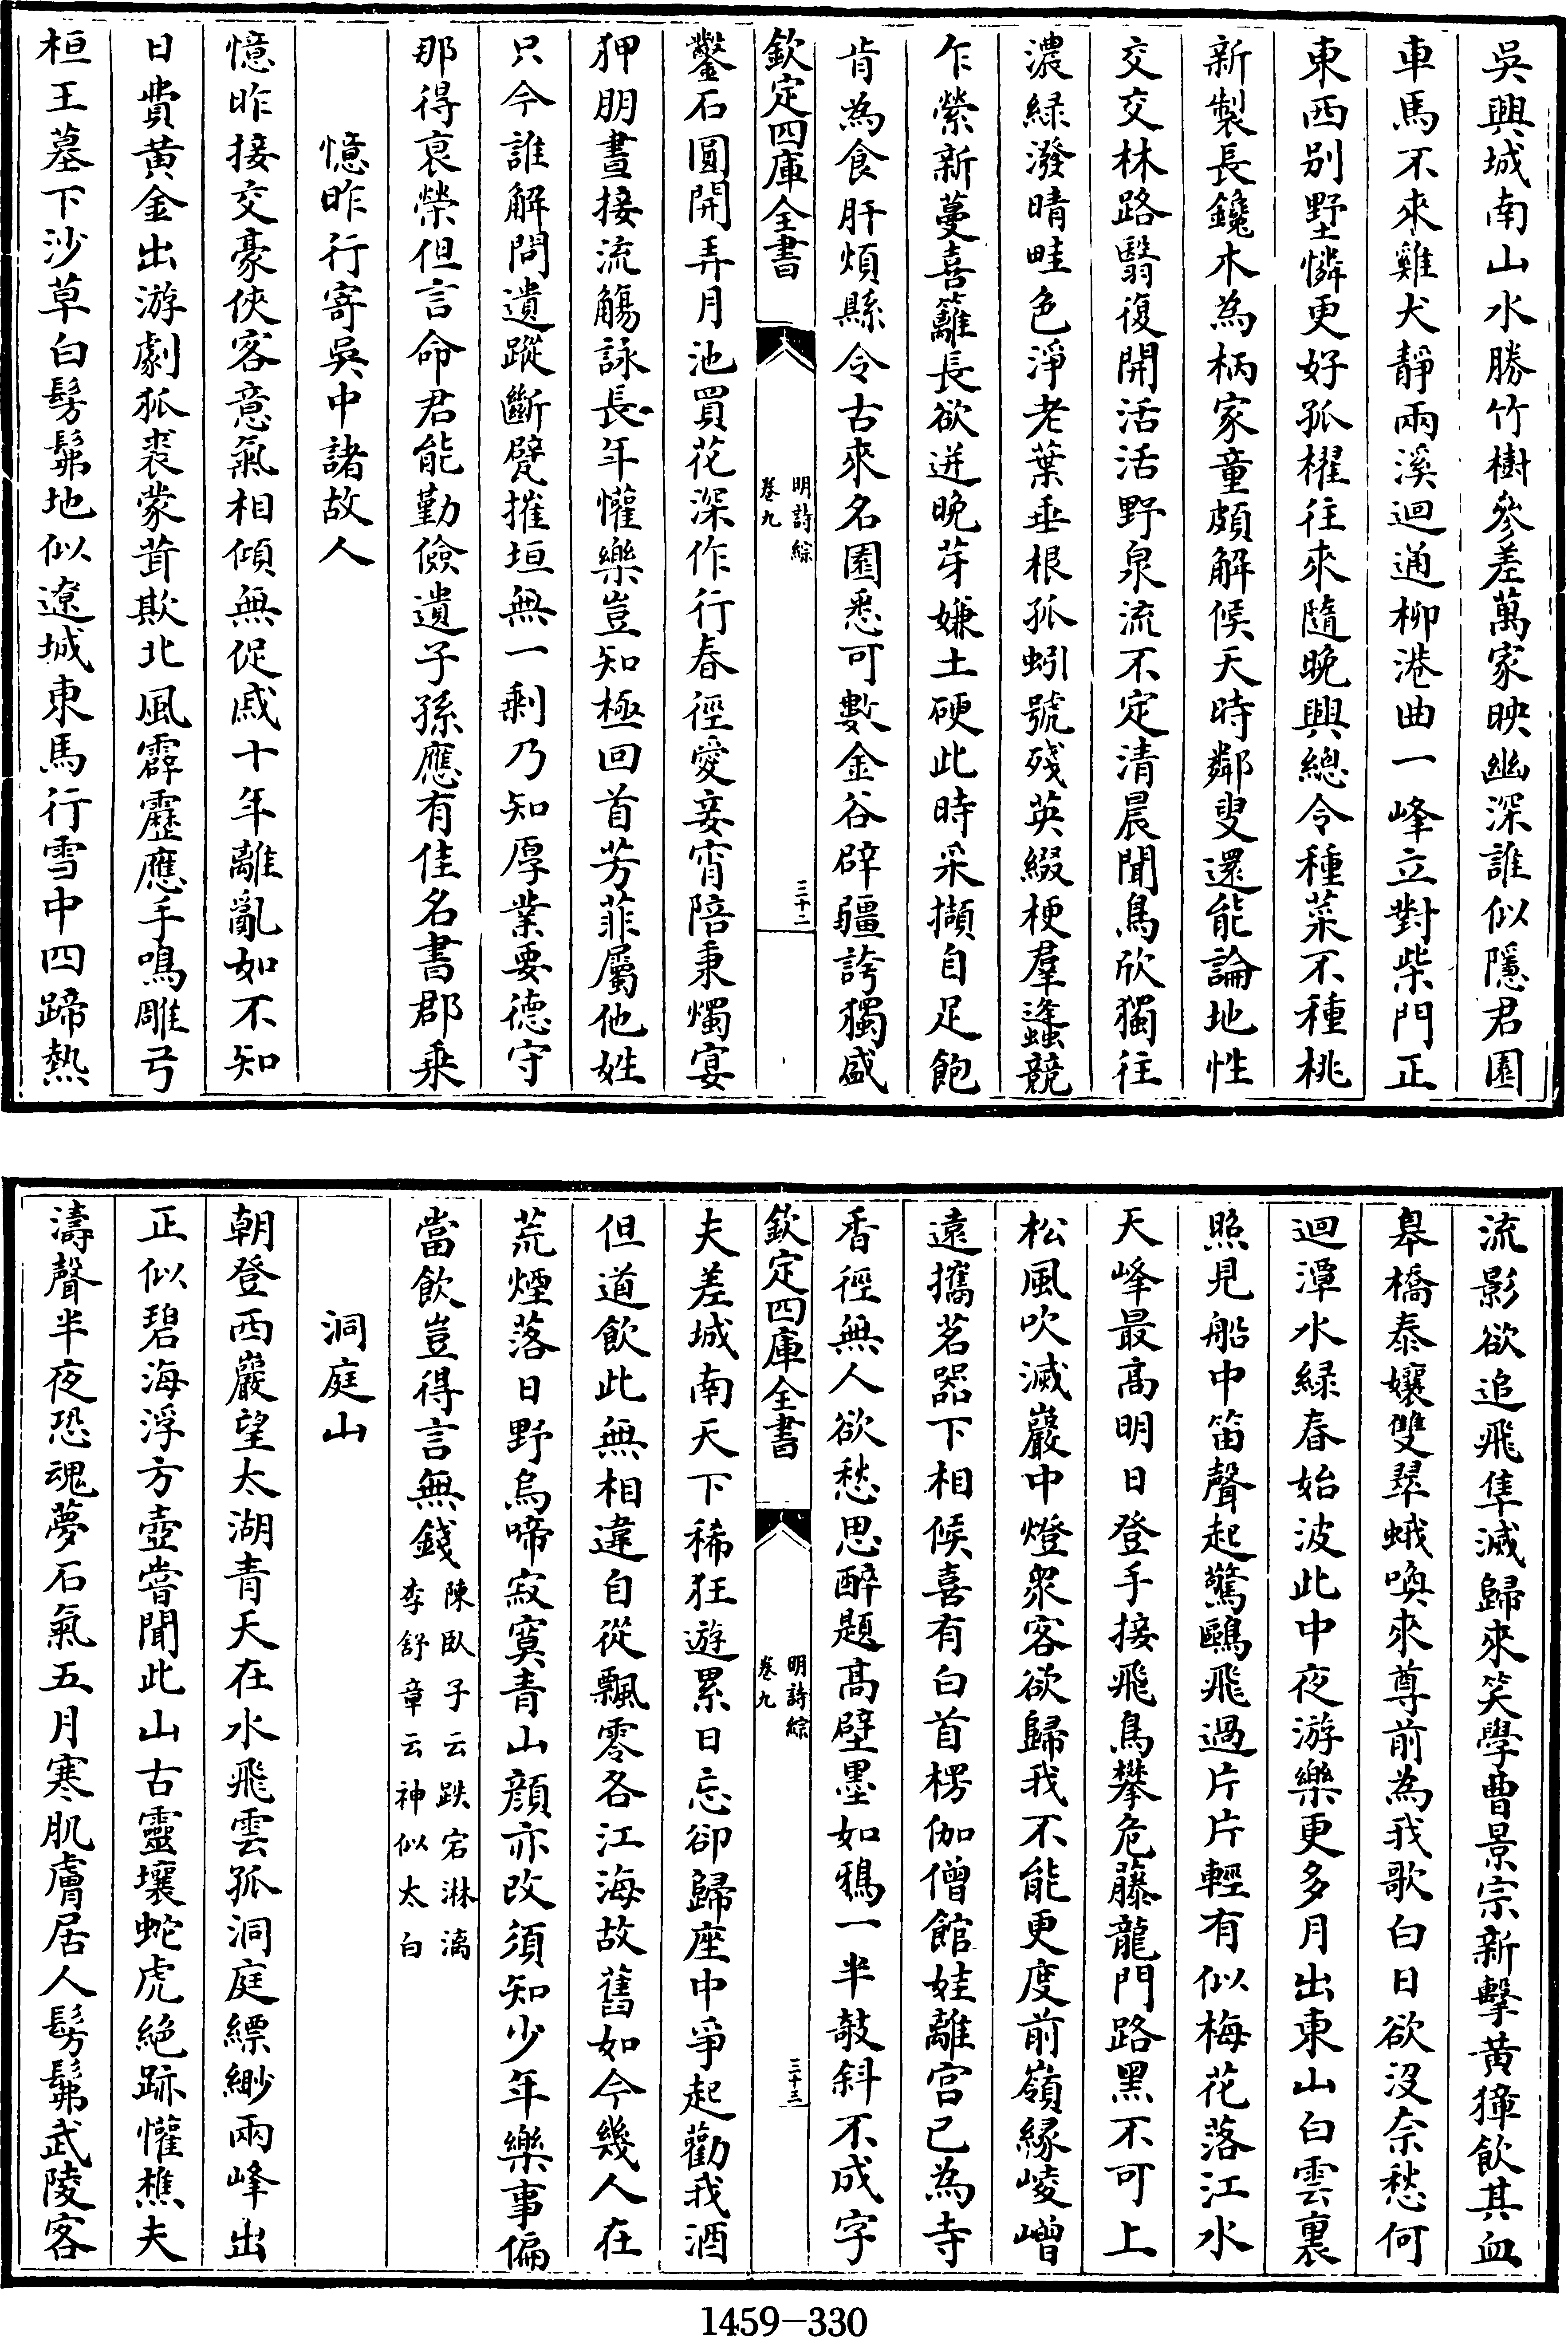 吳興城南山水勝竹樹參差萬家映幽深誰似隱君園
車馬不來雞犬靜兩溪迴通柳港曲一峰立對柴門正
東西別墅憐更好孤櫂往來隨晚興總令種菜不種桃
新製長鑱木為柄家童頗解候天時鄰叟還能論地性
交交林路翳復開活活野泉流不定清晨聞鳥欣獨往
濃緑潑晴畦色淨老葉垂根孤蚓號殘英綴梗羣蠭競
乍縈新蔓喜籬長欲迸晚芽嫌土硬此時采擷自足飽
肯為食肝煩縣令古來名園悉可數金谷辟疆誇獨盛
欽定四庫全書
明詩綜
卷九
三十二
鑿石圓開弄月池買花深作行春徑愛妾宵陪秉燭宴
狎朋晝接流觴詠長年懽樂豈知極回首芳菲屬他姓
只今誰解問遺蹤斷甃摧垣無一剩乃知厚業要德守
那得衰榮但言命君能勤儉遺子孫應有佳名書郡乘
憶昨行寄吳中諸故人
憶昨接交豪俠客意氣相傾無促戚十年離亂如不知
日費黃金出游劇狐裘蒙茸欺北風霹靂應手鳴雕弓
桓王墓下沙草白髣髴地似遼城東馬行雪中四蹄熱
流影欲追飛隼滅歸來笑學曹景宗新擊黃獐飲其血
臯橋泰孃雙翠蛾喚來尊前為我歌白日欲没奈愁何
迴潭水緑春始波此中夜游樂更多月出東山白雲裏
照見船中笛聲起驚鷗飛過片片輕有似梅花落江水
天峰最高明日登手接飛鳥攀危藤龍門路黑不可上
松風吹滅巖中燈衆客欲歸我不能更度前嶺緣崚嶒
遠攜茗器下相候喜有白首楞伽僧館娃離宮已為寺
香徑無人欲愁思醉題高壁墨如鴉一半攲斜不成字
欽定四庫全書
明詩綜
卷九
三十三
夫差城南天下稀狂遊累日忘卻歸座中爭起勸我酒
但道飲此無相違自從飄零各江海故舊如今幾人在
荒煙落日野烏啼寂寞青山顔亦改須知少年樂事偏
當飲豈得言無錢陳臥子云跌宕淋漓
李舒章云神似太白
洞庭山
朝登西巖望太湖青天在水飛雲孤洞庭縹緲兩峰出
正似碧海浮方壺嘗聞此山古靈壤蛇虎絶跡懽樵夫
濤聲半夜恐魂夢石氣五月寒肌膚居人髣髴武陵客
1459-330